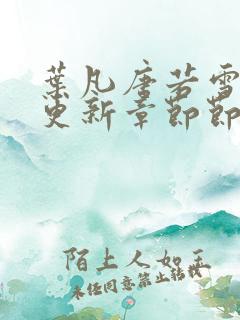 葉凡唐若雪
更新章節節
陌上人如玉
未经同意禁止转载